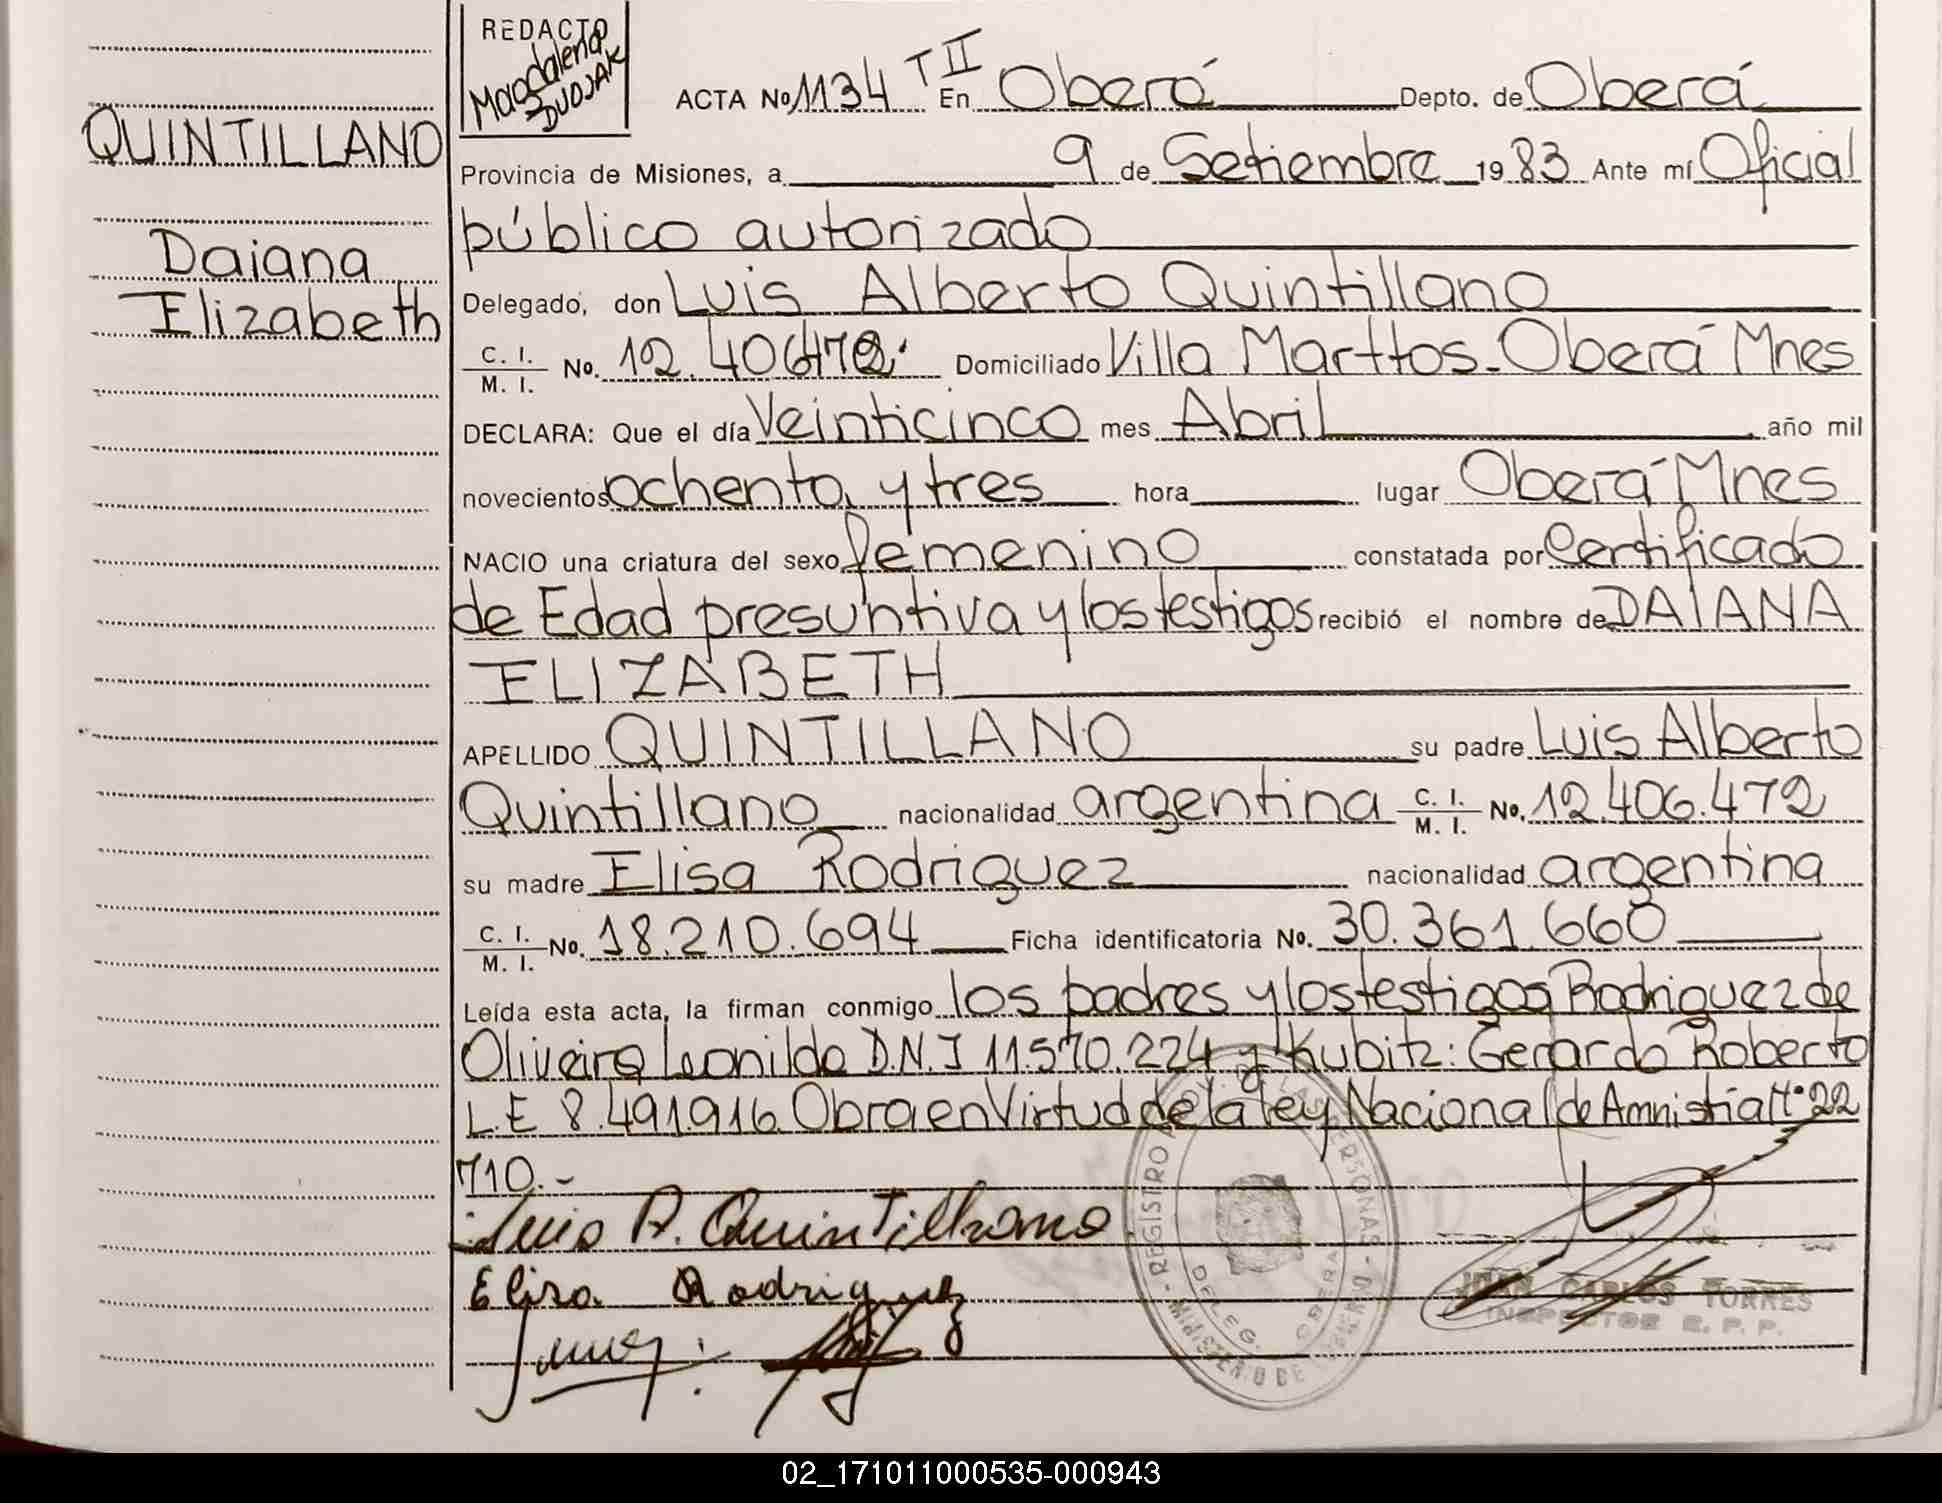 REDACTO
Magdalena
DUDJAK
QUINTILLANO
Daiana
Elizabeth
ACTA No 1134 T II En Oberá Depto. de Oberá
Provincia de Misiones, a 9 de Setiembre 1983 Ante mí Oficial
público autorizado
Delegado, don Luis Alberto Quintillano
C. I. / M. I. No. 12.406472 Domiciliado Villa Marttos-Oberá Mnes
DECLARA: Que el día Veinticinco mes Abril año mil
novecientos ochenta y tres hora lugar Oberá Mnes
NACIO una criatura del sexo femenino constatada por Certificado
de Edad presuntiva y los testigos recibió el nombre de DAIANA
ELIZABETH
APELLIDO QUINTILLANO su padre Luis Alberto
Quintillano nacionalidad argentina C. I. / M. I. No. 12.406.472
su madre Elisa Rodriguez nacionalidad argentina
C. I. / M. I. No. 18.210.694 Ficha identificatoria No. 30.361.660
Leída esta acta, la firman conmigo los padres y los testigos Rodriguez de
Oliveira Leonilda D.N.I 11.570.224 y Kubitz: Gerardo Roberto
L.E 8.491.916. Obra en Virtud de la ley Nacional de Amnistia Nº 22
710.-
Luis A. Quintillano
Elisa Rodriguez
REGISTRO PROV. DE LAS PERSONAS - MINISTERIO DE GOBIERNO
DELEG. OBERA
JUAN CARLOS TORRES
INSPECTOR R. P. P.
02_171011000535-000943